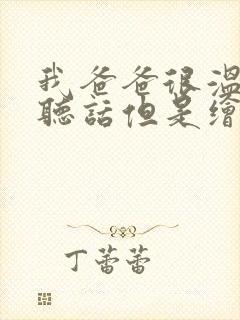 我爸爸很溫
聽話但是繪
丁蕾蕾